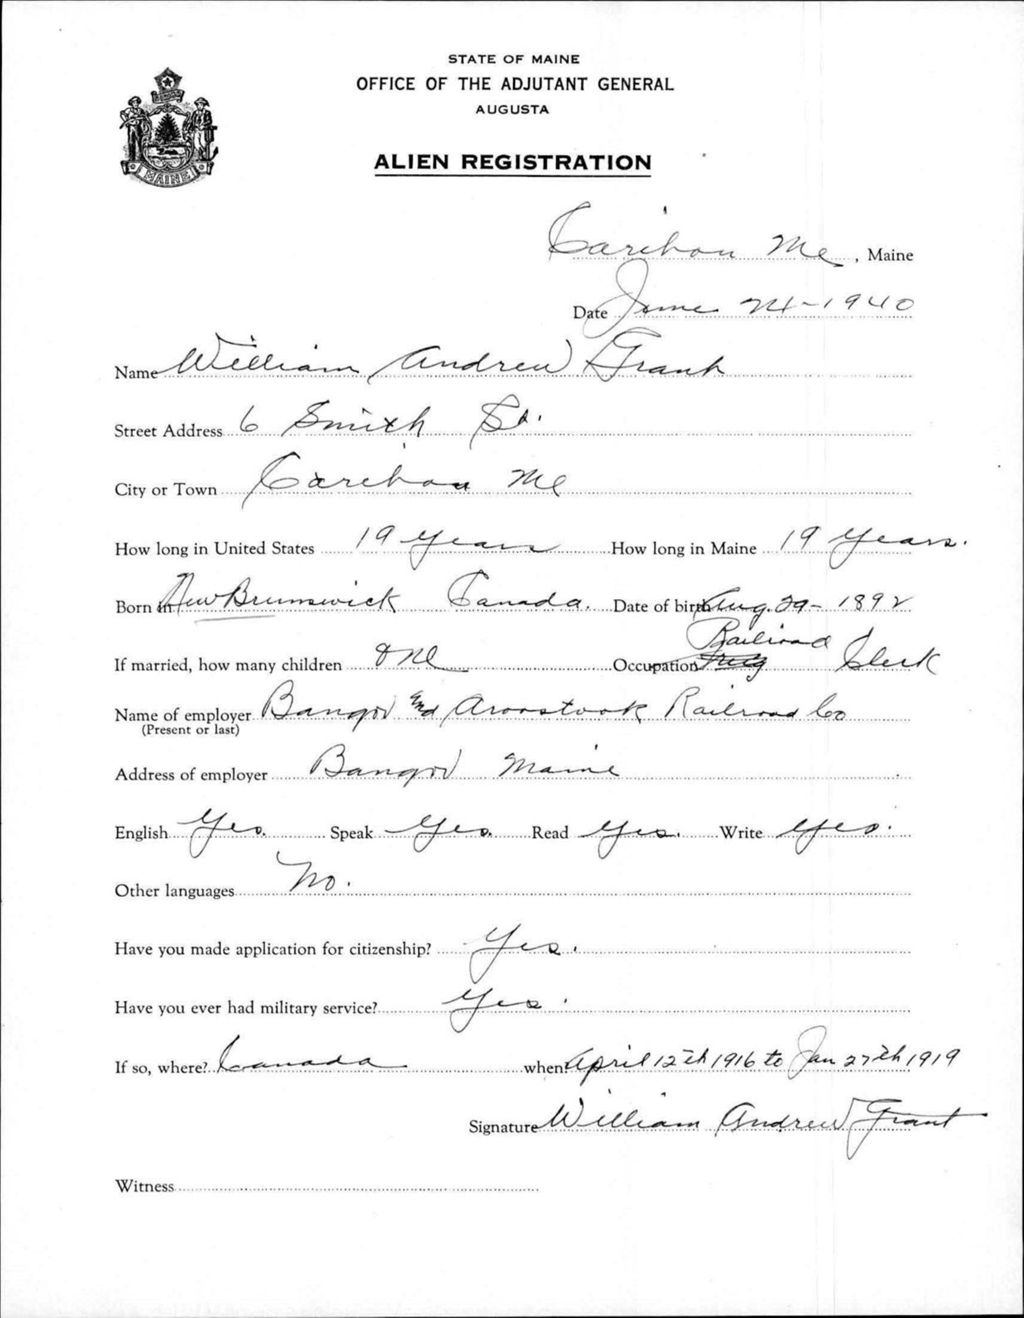 STATE OF MAINE
OFFICE OF THE ADJUTANT GENERAL
AUGUSTA
ALIEN REGISTRATION
MAINE
Caribou Me, Maine
Date June 24-1940
Name William Andrew Grant
Street Address 6 Smith St.
City or Town Caribou Me
How long in United States 19 years How long in Maine 19 years.
Born in New Brunswick Canada. Date of birth Aug. 29-1892
If married, how many children one Occupation Railroad Clerk
Name of employer Bangor and Aroostook Railroad Co
(Present or last)
Address of employer Bangor Maine
English Yes. Speak Yes. Read Yes. Write Yes.
Other languages No.
Have you made application for citizenship? Yes.
Have you ever had military service? Yes.
If so, where? Canada when April 12th 1916 to Jan 27th 1919
Signature William Andrew Grant
Witness